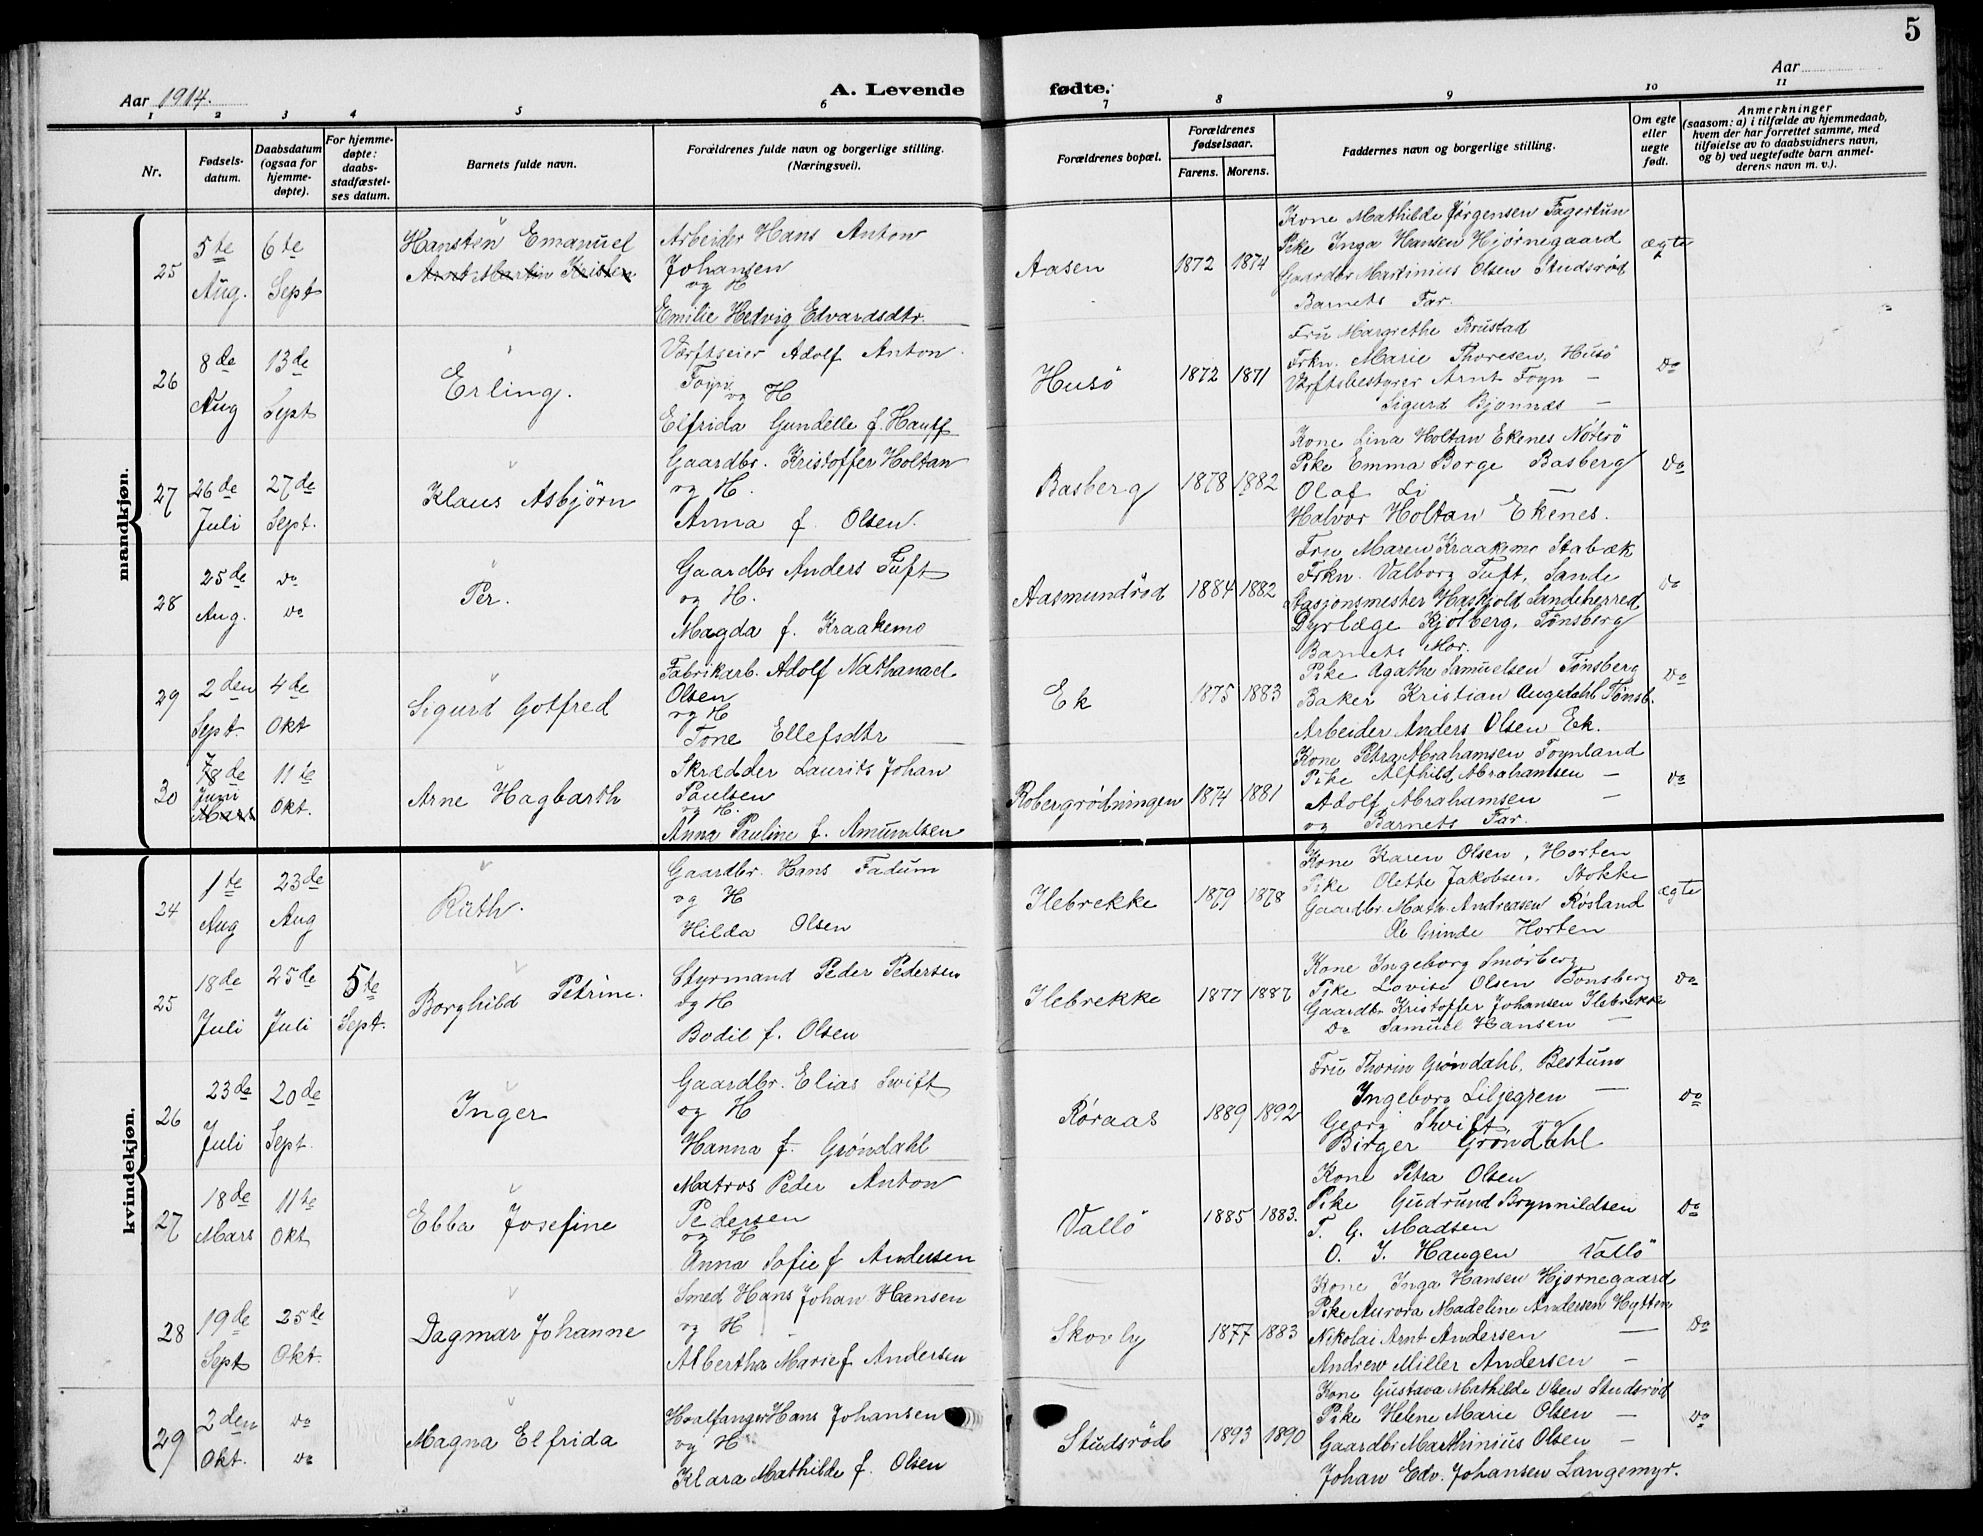 5
Aar 1914.
A. Levende fødte.
Aar
1 2 3 4 5 6 7 8 9 10 11
Nr.
Fødsels-
datum.
Daabsdatum
(ogsaa for
hjemme-
døpte).
For hjemme-
døpte:
daabs-
stadfæstel-
ses datum.
Barnets fulde navn.
Forældrenes fulde navn og borgerlige stilling.
(Næringsvei).
Forældrenes bopæl.
Forældrenes
fødselsaar.
Farens. Morens.
Faddernes navn og borgerlige stilling.
Om egte
eller
uegte
født.
Anmerkninger
(saasom: a) i tilfælde av hjemmedaab,
hvem der har forrettet samme, med
tilføielse av to daabsvidners navn,
og b) ved uegtefødte barn anmel-
derens navn m. v.).
mandkjøn.
25
5te
Aug.
6te
Sept
Hansten Emanuel
Arnt Martin Kristen
Arbeider Hans Anton
Johansen
og H
Emilie Hedvig Edvardsdtr.
Aasen
1872 1874
Kone Mathilde Jørgensen Fagertun
Pike Inga Hansen Hjørnegaard
Gaardbr Martinius Olsen Studsrød
Barnets Far.
ægte
26
8de
Aug
13de
Sept
Erling.
Værftseier Adolf Anton
Foyn
og H
Elfrida Gundelle f. Hauff
Husö
1872 1871
Fru Margrethe Brustad
Frkn. Marie Thoresen, Husö
Værftsbestyrer Arnt Foyn —
Sigurd Bjønnes —
do
27
26de
Juli
27de
Sept.
Klaus Asbjörn
Gaardbr. Kristoffer Holtan
og H.
Anna f. Olsen.
Basberg
1878 1882
Kone Lina Holtan Ekenes Nöterö
Pike Emma Borge Basberg
Olaf Li
Halvor Holtan Ekenes.
do
28
25de
Aug.
do
do
Per.
Gaardbr Anders Tuft
og H.
Magda f. Kraakemo
Aasmundrød
1884 1882
Fru Maren Kraakemo Stabæk
Frkn. Valborg Tuft, Sande
Stasjonsmester Haskjold Sandeherred
Dyrlæge Kjølberg, Tønsberg
Barnets Mor.
do
29
2den
Sept.
4de
Okt
Sigurd Gotfred
Fabrikarb. Adolf Nathanael
Olsen
og H
Tone Ellefsdtr
Ek
1875 1883
Pike Agathe Samuelsen Tønsberg
Baker Kristian Augedahl Tønsb.
Arbeider Anders Olsen Ek.
do
30
7de
Juni
Mars
11te
Okt.
Arne Hagbarth
Skrædder Laurits Johan
Paulsen
og H.
Anna Pauline f. Amundsen
Robergrødningen
1874 1881
Kone Petra Abrahamsen Foynland
Pike Alfhild Abrahamsen —
Adolf Abrahamsen —
og Barnets Far.
do
kvindekjøn.
24
1te
Aug
23de
Aug
Ruth.
Gaardbr. Hans Fadum
og H
Hilda Olsen
Ilebrekke
1879 1878
Kone Karen Olsen, Horten
Pike Olette Jakobsen, Stokke
Gaardbr Math. Andreasen Røsland
Ole Grinde Horten
ægte
25
18de
Juli
25de
Juli
5te
Sept.
Borghild Petrine.
Styrmand Peder Pedersen
og H
Bodil f. Olsen
Ilebrekke
1877 1887
Kone Ingeborg Smørberg
Pike Lovise Olsen Tønsberg
Gaardbr Kristoffer Johansen Ilebrekke
do Samuel Hansen —
do
26
23de
Juli
20de
Sept.
Inger
Gaardbr. Elias Swift
og H
Hanna f. Grøndahl
Røraas
1889 1892
Fru Thorin Grøndahl, Bestum
Ingeborg Liljegren —
Georg Swift
Birger Grøndahl
do
27
18de
Mars
11te
Okt
Ebba Josefine
Matros Peder Anton
Pedersen
og H
Anna Sofie f Andersen
Vallö
1885 1883.
Kone Petra Olsen
Pike Gudrund Brynnildsen
T. G. Madsen
O. J. Haugen Vallö
do
28
19de
Sept
25de
Okt.
Dagmar Johanne
Smed Hans Johan Hansen
og H
Albertha Marie f Andersen
Skovby
1877 1883
Kone Inga Hansen Hjørnegaard
Pike Aurora Madeline Andersen Hytten
Nikolai Arnt Andersen —
Andrew Miller Andersen —
do
29
2den
Okt.
do
do
Magna Elfrida
Hvalfanger Hans Johansen
og H
Klara Mathilde f. Olsen
Studsrød
1893 1890
Kone Gustava Mathilde Olsen Studsrød
Pike Helene Marie Olsen —
Gaardbr Marthinius Olsen —
Johan Edv. Johansen Langemyr.
do